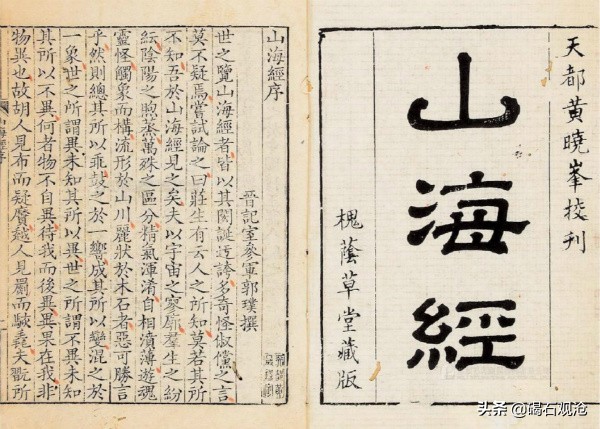 天都黄曉峯挍刊
山海經
槐蔭草堂藏版
山海經序
晉記室參軍郭璞撰
世之覽山海經者皆以其閎誕迂誇多奇怪俶儻之言
莫不疑焉嘗試論之曰莊生有云人之所知莫若其所
不知吾於山海經見之矣夫以宇宙之寥廓羣生之紛
紜陰陽之煦蒸萬殊之區分精氣渾淆自相濆薄遊魂
靈怪觸象而構流形於山川麗狀於木石者惡可勝言
乎然則總其所以乖鼓之於一響成其所以變混之於
一象世之所謂異未知其所以異世之所謂不異未知
其所以不異何者物不自異待我而後異異果在我非
物異也故胡人見布而疑黂越人見罽而駭毳夫翫所
山海經序
头条 @碣石观沧